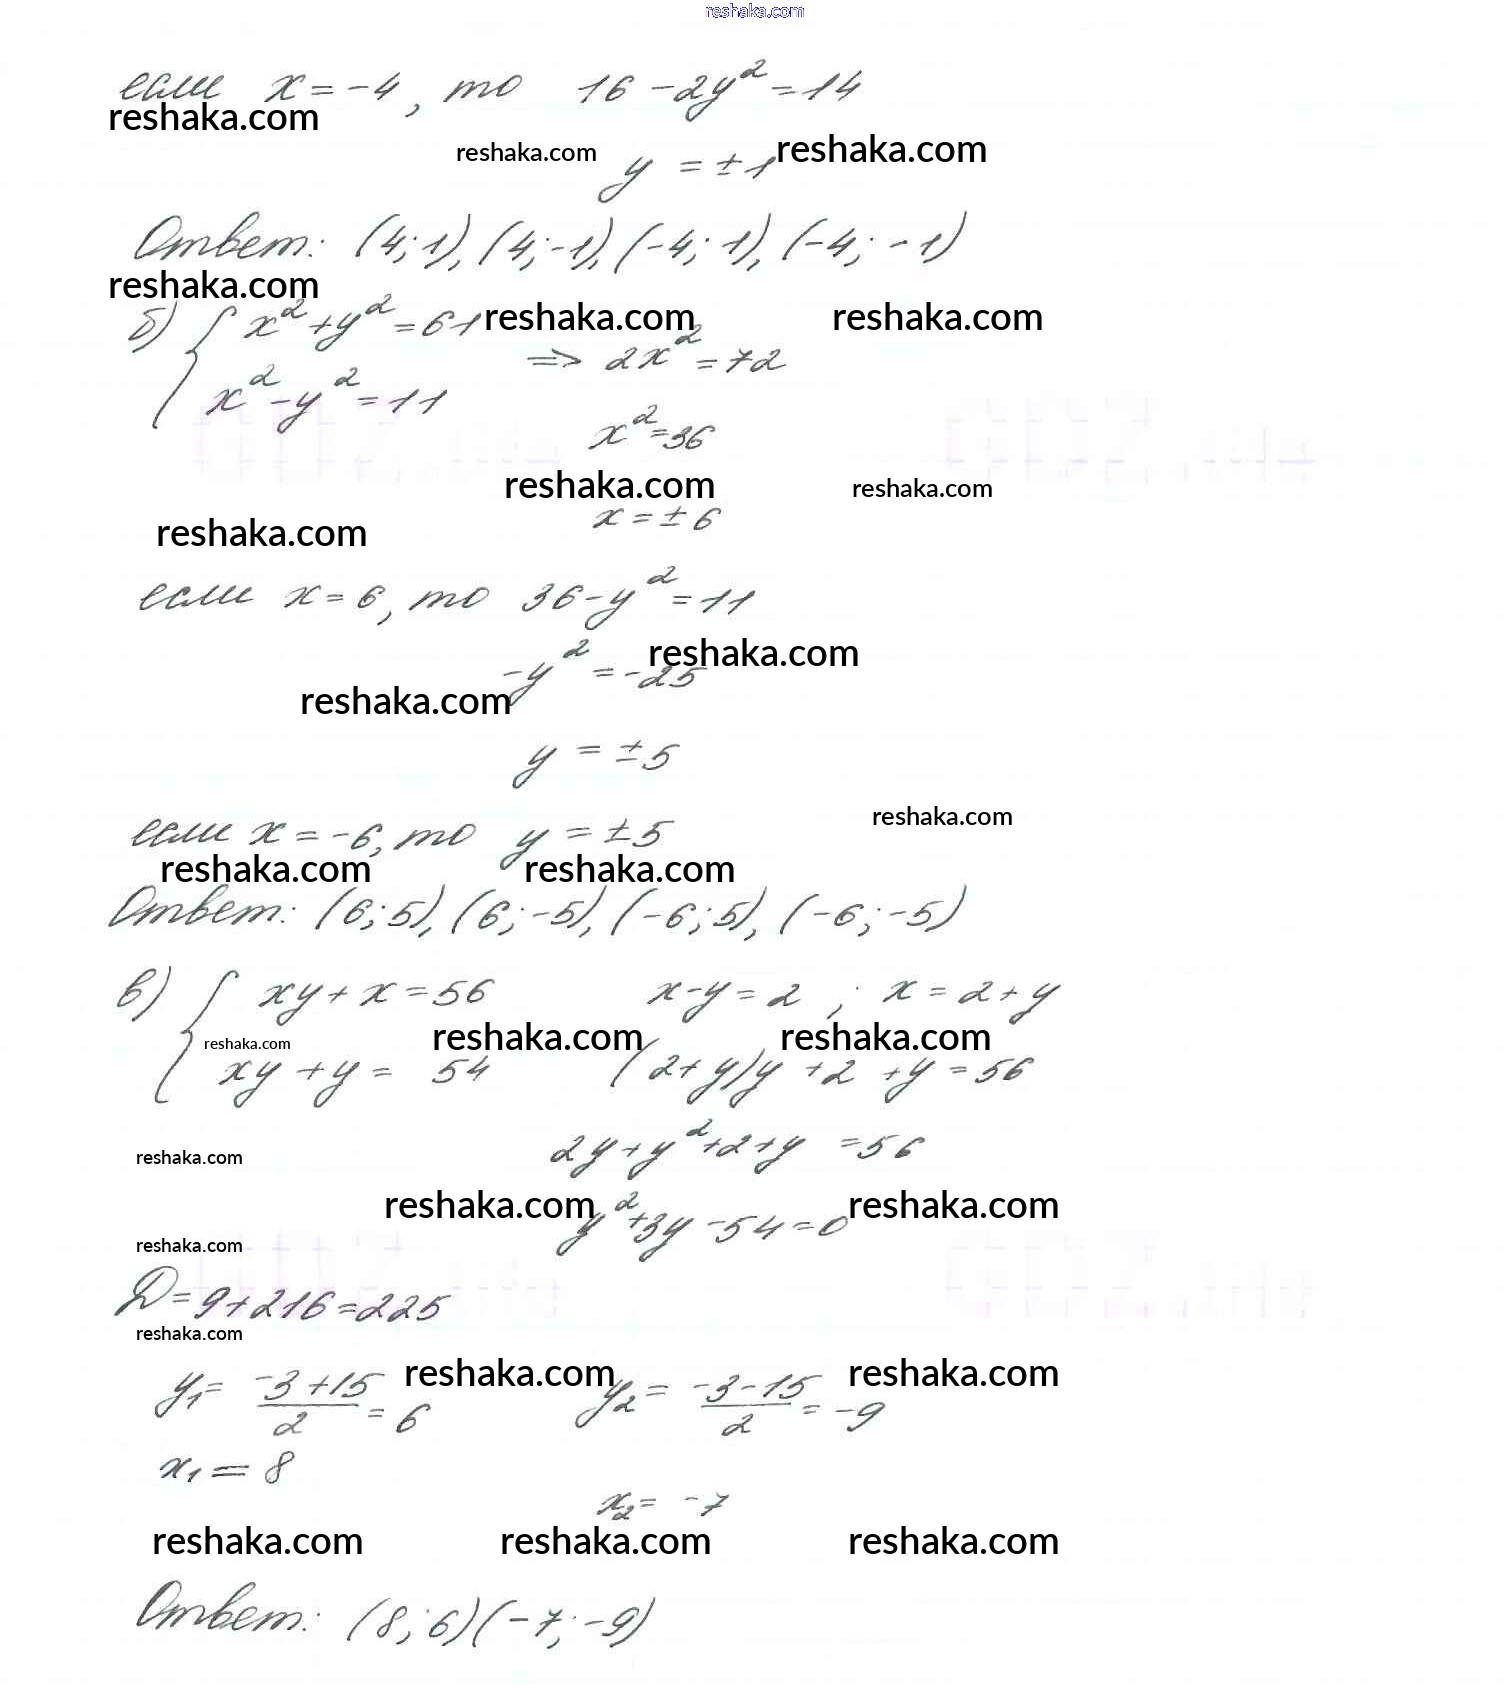 reshaka.com
если x = -4, то 16 - 2y² = 14
reshaka.com
reshaka.com y = ±1 reshaka.com
Ответ: (4; 1), (4; -1), (-4; 1), (-4; -1)
reshaka.com
б) { x² + y² = 61 reshaka.com reshaka.com
x² - y² = 11 => 2x² = 72
x² = 36
reshaka.com reshaka.com
reshaka.com x = ±6
если x = 6, то 36 - y² = 11
reshaka.com
-y² = -25
reshaka.com
y = ±5
reshaka.com
если x = -6, то y = ±5
reshaka.com reshaka.com
Ответ: (6; 5), (6; -5), (-6; 5), (-6; -5)
в) { xy + x = 56 x - y = 2 ; x = 2 + y
reshaka.com reshaka.com reshaka.com
xy + y = 54 (2 + y)y + 2 + y = 56
reshaka.com 2y + y² + 2 + y = 56
reshaka.com reshaka.com
y² + 3y - 54 = 0
reshaka.com
D = 9 + 216 = 225
reshaka.com
reshaka.com reshaka.com
y₁ = (-3 + 15)/2 = 6 y₂ = (-3 - 15)/2 = -9
x₁ = 8
x₂ = -7
reshaka.com reshaka.com reshaka.com
Ответ: (8; 6) (-7; -9)